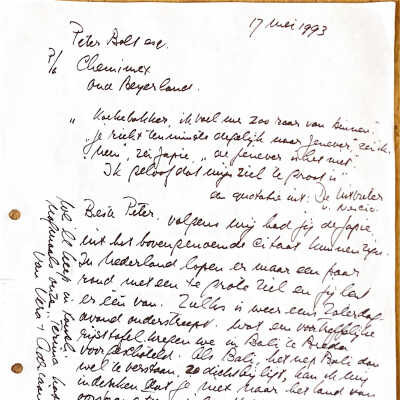 17 mei 1993
Peter Bolt esc.
P/a Chemimex
Oud Beyerland.
"Koekebakker, ik voel me zoo raar van binnen"
"Je riekt tenminste degelijk naar Jenever", zei ik.
"Neen", zei Japie, "de jenever is het niet"
Ik geloof dat mijn ziel te groot is"
een quotatie uit: De Uitvreter
v. Nescio.
Beste Peter, volgens mij had jij de Japie
uit het bovengenoemde citaat kunnen zijn.
In Nederland lopen er maar een paar
rond met een te grote ziel en jij bent
er één van. Zulks is weer eens Zaterdag-
avond onderstreept. Wat een voortreffelijke
rijsttafel kregen we in Bali te Breda
voorgeschoteld. Als Bali, het nep Bali dan
wel te verstaan, zo dichtbij ligt, kan ik mij
indenken dat je niet naar het land van
van Vera + Adriaan